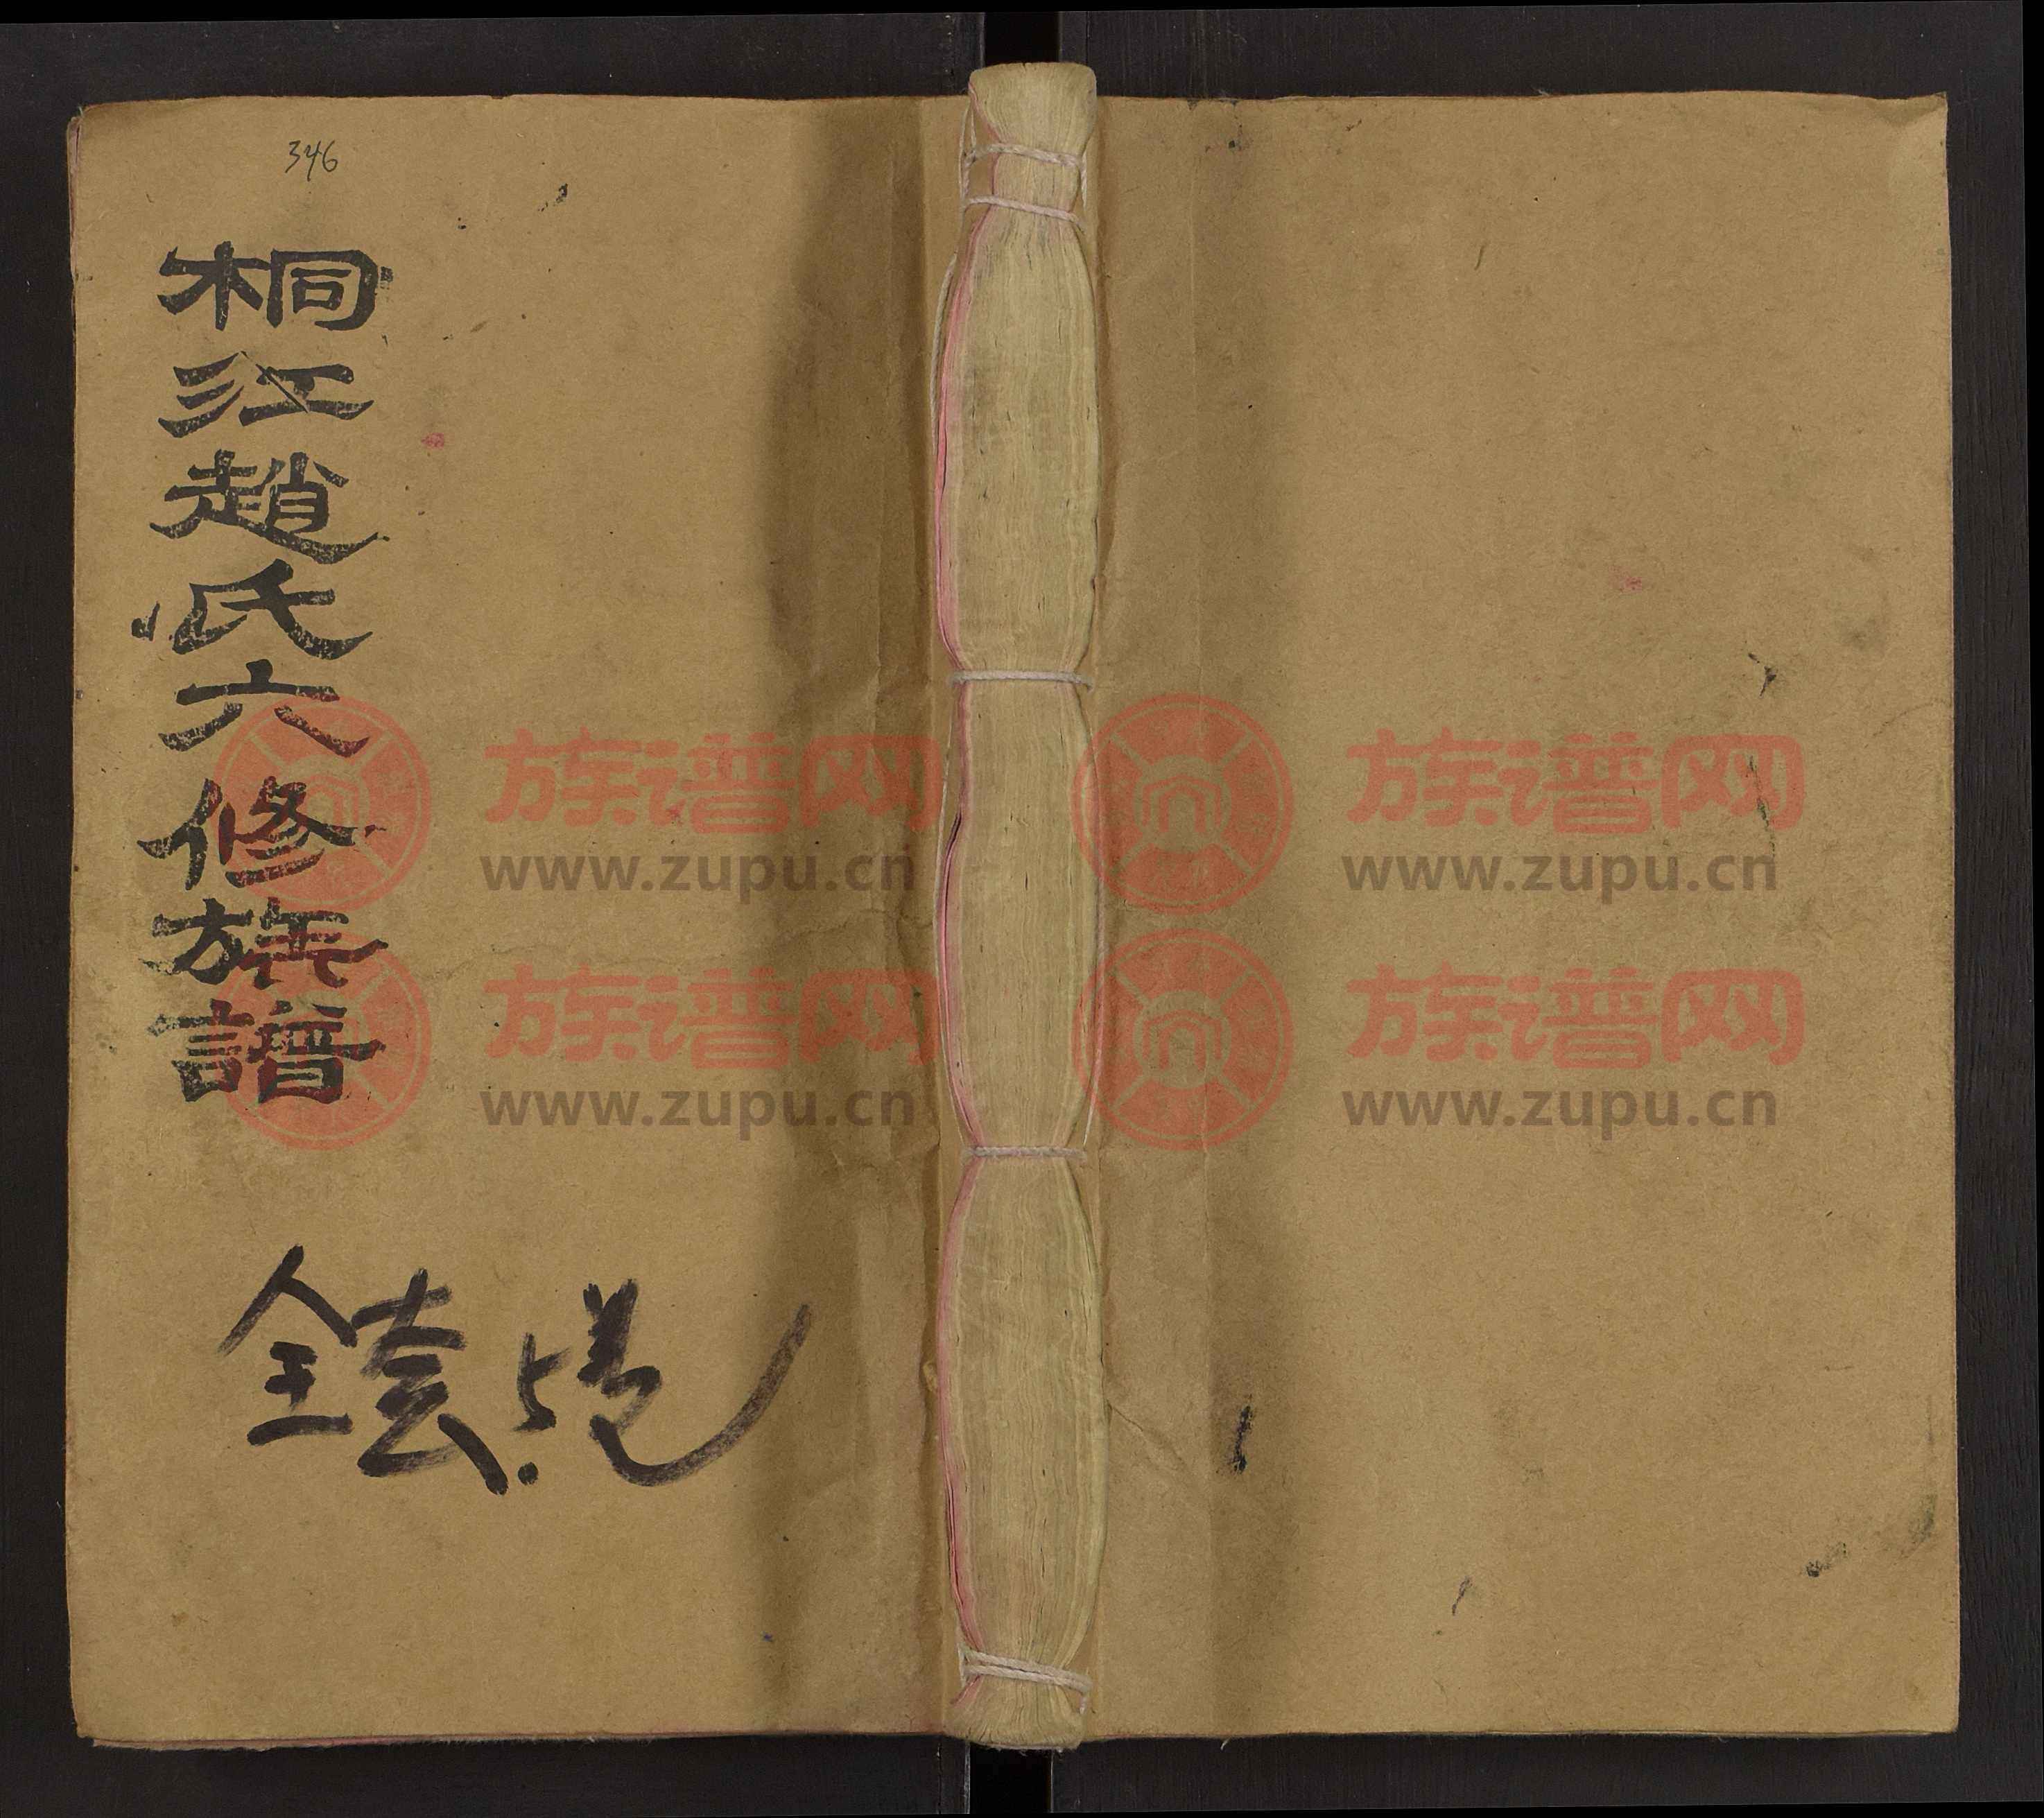 346
桐江趙氏六修族譜
全套.5卷
族谱网 族谱网
www.zupu.cn www.zupu.cn
族谱网 族谱网
www.zupu.cn www.zupu.cn